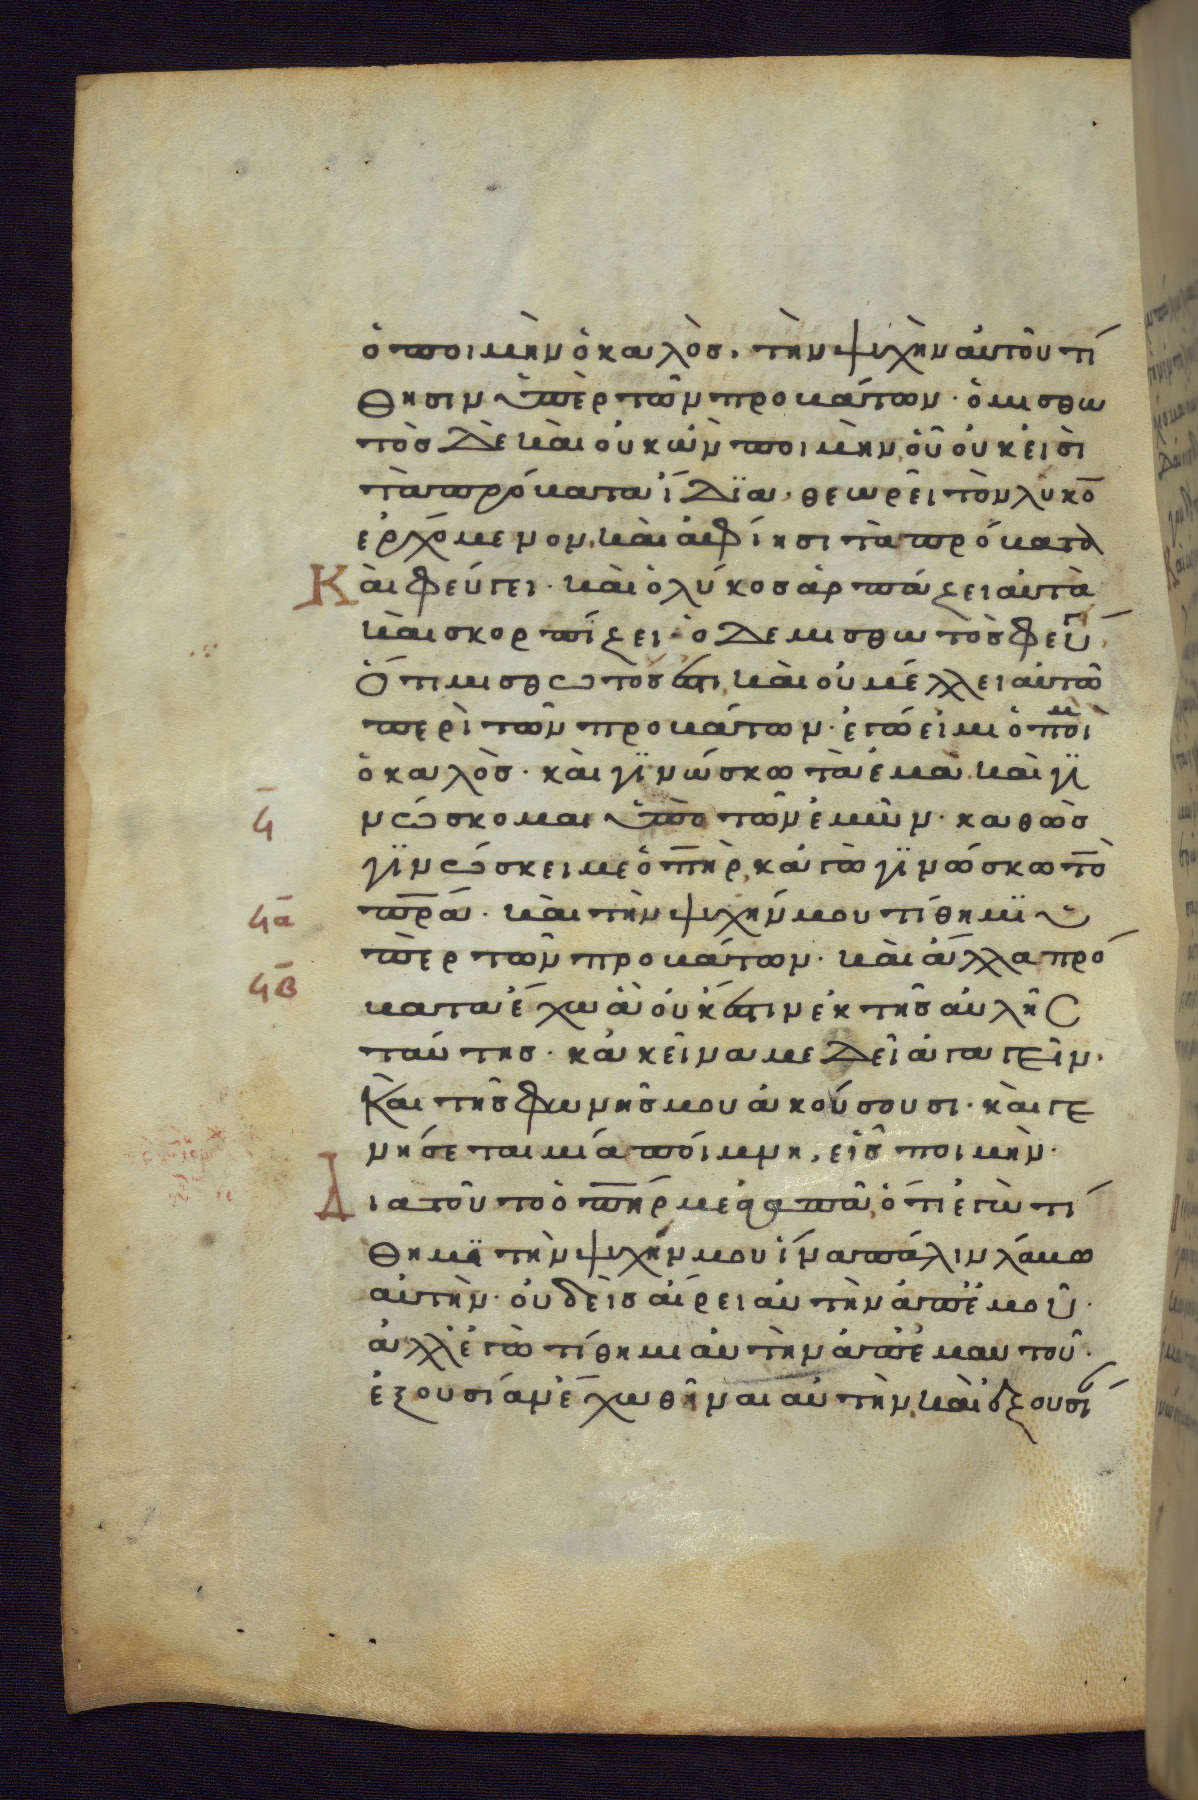 ὁ ποιμὴν ὁ καλὸσ. τὴν ψυχὴν αὐτοῦ τί
θησιν ὑπὲρ τῶν προβάτων · ὁ μισθω
τὸσ δὲ καὶ οὐκ ὢν ποιμὴν, οὗ οὐκ εἰσὶ
τὰ πρόβατα ἴδϊα · θεωρεῖ τὸν λυκο̅
ἐρχόμενον, καὶ ἀφίησι τὰ πρόβατα
Καὶ φεύγει · καὶ ὁ λύκοσ ἁρπάζει αὐτὰ
καὶ σκορπίζει · ὁ δε μισθωτὸσ φεύγ
ὅτι μισθωτόσ ἐστι, καὶ οὐ μέλλει αὐτῶ
περὶ τῶν προβάτων · ἐγώ εἰμι ὁ ποιμ
ὁ καλὸσ · καὶ γϊνώσκω τὰ ἐμὰ. καὶ γϊ
Ϟ̅ νώσκομαι ὑπὸ τῶν ἐμῶν · καθὼσ
γϊνώσκει με ὁ π̅η̅ρ, κἀγὼ γϊνώσκω τὸ
Ϟα̅ π̅ρ̅α̅ · καὶ τὴν ψυχήν μου τίθημϊ ὑ
πὲρ τῶν προβάτων · καὶ ἄλλα πρό
Ϟβ̅ βατα ἔχω ἃ οὐκ ἔστιν ἐκ τῆσ αὐλῆσ
ταύτησ · κἀκεῖνα με δεῖ ἀγαγεῖν.
Καὶ τῆσ φωνῆσ μου ἀκούσουσι · καὶ γε
νήσεται μία ποίμνη, εἷσ ποιμὴν ·
Διατοῦτο ὁ π̅η̅ρ με ἀγαπᾶ, ὅτι ἐγὼ τί
θημϊ τὴν ψυχήν μου ἵνα πάλιν λάβω
αὐτὴν · οὐδεὶσ αἴρει αὐτὴν ἀπ᾽ ἐμοῦ ·
ἀλλ᾽ ἐγὼ τίθημι αὐτὴν ἀπ᾽ ἐμαυτοῦ ·
ἐξουσίαν ἔχω θεῖναι αὐτὴν, καὶ ἐξουσί